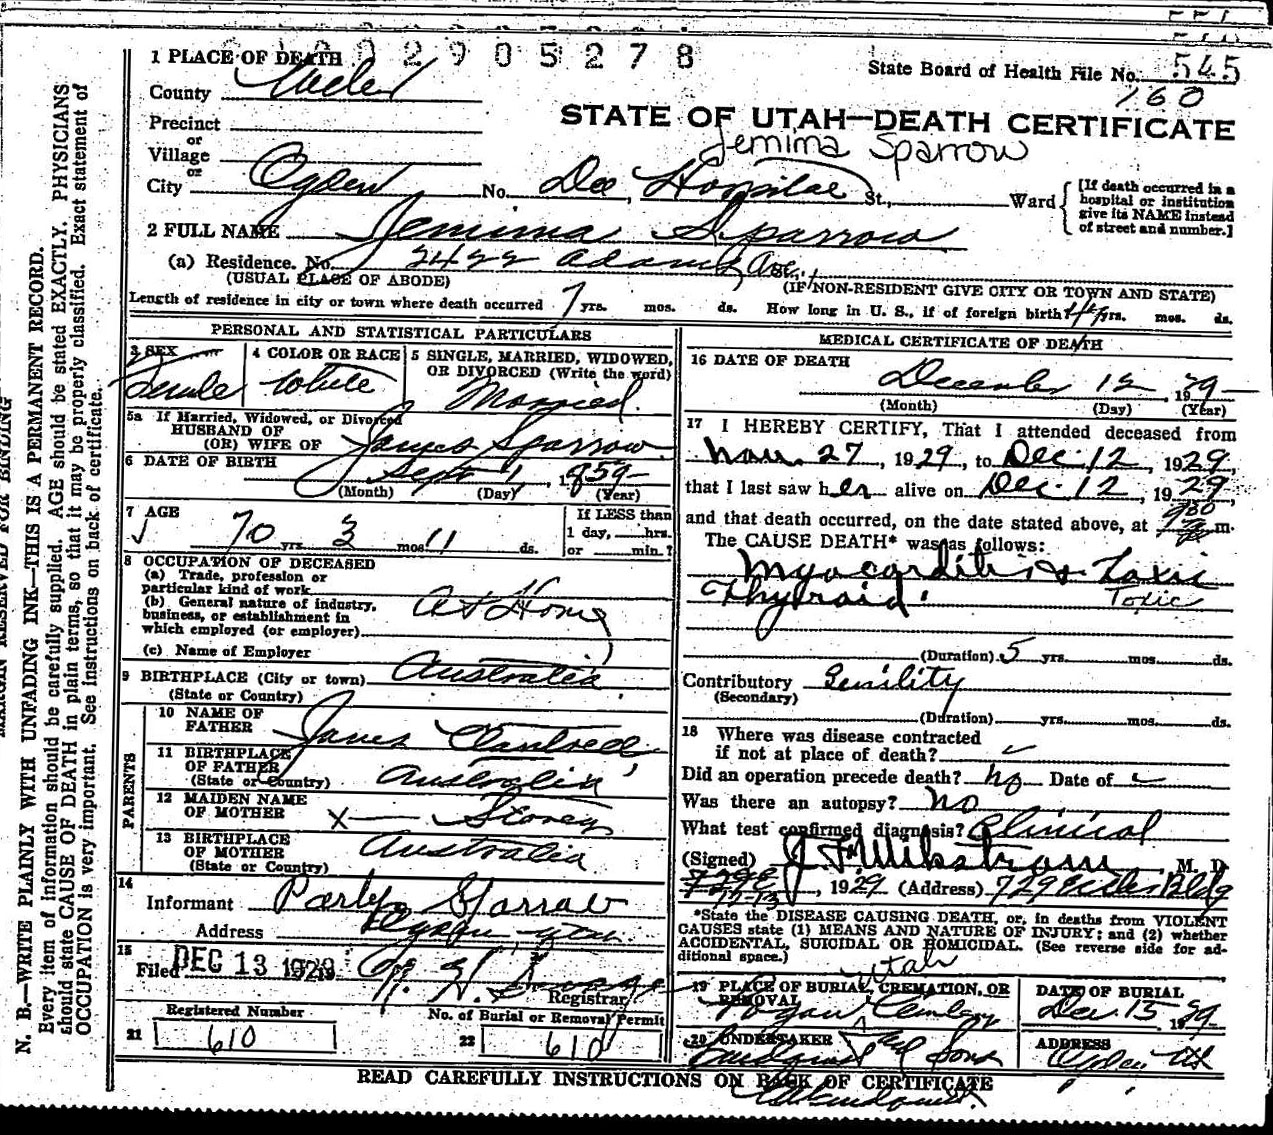 2905278
1 PLACE OF DEATH
State Board of Health File No. 545
160
County Weber
STATE OF UTAH—DEATH CERTIFICATE
Precinct
or
Jemima Sparrow
Village
or
City Ogden No. Dee Hospital St., Ward
[If death occurred in a
hospital or institution
give its NAME instead
of street and number.]
2 FULL NAME Jemima Sparrow
(a) Residence. No. 2422 Adams Ave. St.,
(USUAL PLACE OF ABODE) (IF NON-RESIDENT GIVE CITY OR TOWN AND STATE)
Length of residence in city or town where death occurred 7 yrs. mos. ds. How long in U. S., if of foreign birth yrs. mos. ds.
PERSONAL AND STATISTICAL PARTICULARS
3 SEX
Female
4 COLOR OR RACE
White
5 SINGLE, MARRIED, WIDOWED,
OR DIVORCED (Write the word)
Married
5a If Married, Widowed, or Divorced
HUSBAND OF
(OR) WIFE OF James Sparrow
6 DATE OF BIRTH Sept 1, 1859
(Month) (Day) (Year)
7 AGE
70 yrs. 3 mos. 11 ds.
If LESS than
1 day, hrs.
or min.?
8 OCCUPATION OF DECEASED
(a) Trade, profession or
particular kind of work
(b) General nature of industry,
business, or establishment in
which employed (or employer)
At Home
(c) Name of Employer
9 BIRTHPLACE (City or town) Australia
(State or Country)
PARENTS
10 NAME OF
FATHER James
11 BIRTHPLACE
OF FATHER
(State or Country) Australia
12 MAIDEN NAME
OF MOTHER X— Storey
13 BIRTHPLACE
OF MOTHER
(State or Country) Australia
14
Informant Sparrow
Address Utah
15
Filed DEC 13 1929
Registrar
Registered Number
21 610
No. of Burial or Removal Permit
22 610
MEDICAL CERTIFICATE OF DEATH
16 DATE OF DEATH
December 12, 1929
(Month) (Day) (Year)
17 I HEREBY CERTIFY, That I attended deceased from
Nov. 27, 1929, to Dec 12, 1929,
that I last saw her alive on Dec. 12, 1929
and that death occurred, on the date stated above, at m.
The CAUSE DEATH* was as follows:
Myocarditis & Toxic
Thyroid. Toxic
(Duration) 5 yrs. mos. ds.
Contributory Senility
(Secondary)
(Duration) yrs. mos. ds.
18 Where was disease contracted
if not at place of death?
Did an operation precede death? no Date of
Was there an autopsy? no
What test confirmed diagnosis? Clinical
(Signed) J F Wikstrom M. D.
12-13, 1929 (Address) 729 Eccles Bldg
*State the DISEASE CAUSING DEATH, or, in deaths from VIOLENT
CAUSES state (1) MEANS AND NATURE OF INJURY; and (2) whether
ACCIDENTAL, SUICIDAL OR HOMICIDAL. (See reverse side for ad-
ditional space.)
Utah
19 PLACE OF BURIAL, CREMATION, OR
REMOVAL
Cemetery
DATE OF BURIAL
Dec. 15 1929
20 UNDERTAKER
& Sons
ADDRESS
Ogden Ut
READ CAREFULLY INSTRUCTIONS ON BACK OF CERTIFICATE
MARGIN RESERVED FOR BINDING
N. B.—WRITE PLAINLY WITH UNFADING INK—THIS IS A PERMANENT RECORD.
Every item of information should be carefully supplied. AGE should be stated EXACTLY. PHYSICIANS
should state CAUSE OF DEATH in plain terms, so that it may be properly classified. Exact statement of
OCCUPATION is very important. See instructions on back of certificate.